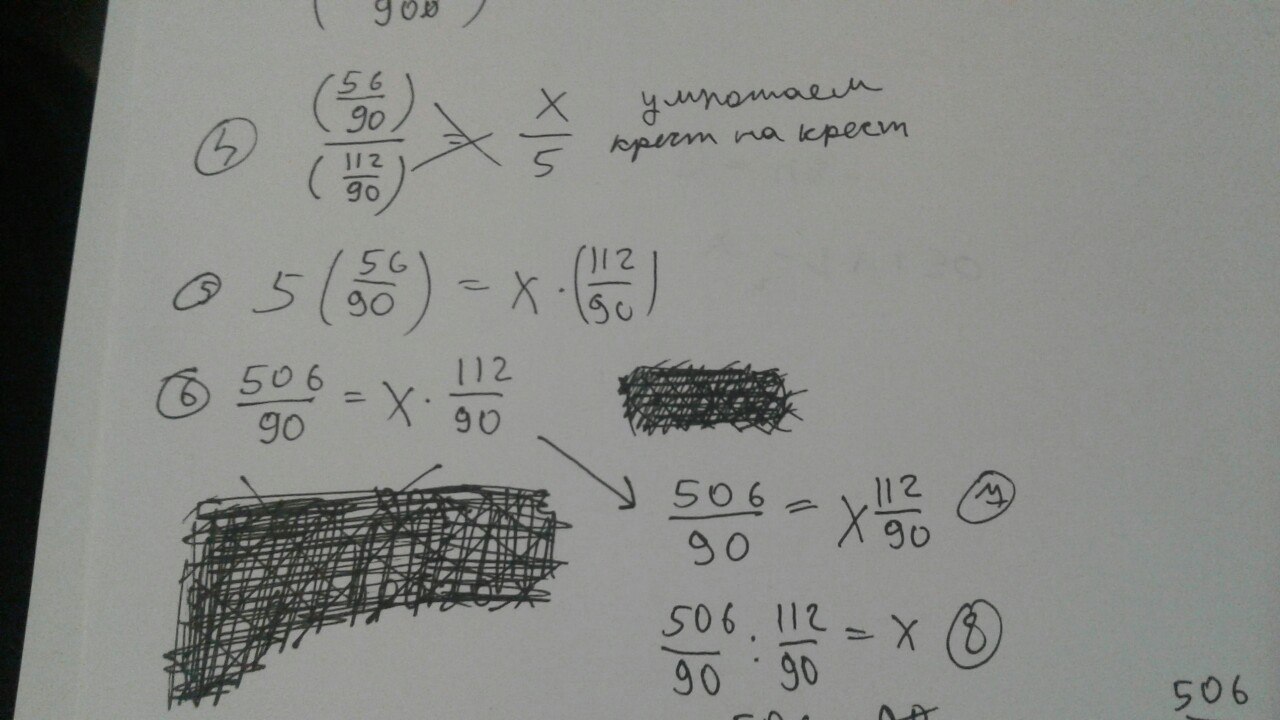 900
(4) (56/90)/(112/90) = x/5 умножаем
крест на крест
(5) 5(56/90) = x·(112/90)
(6) 506/90 = x·112/90
506/90 = x 112/90 (7)
506/90 : 112/90 = x (8)
506